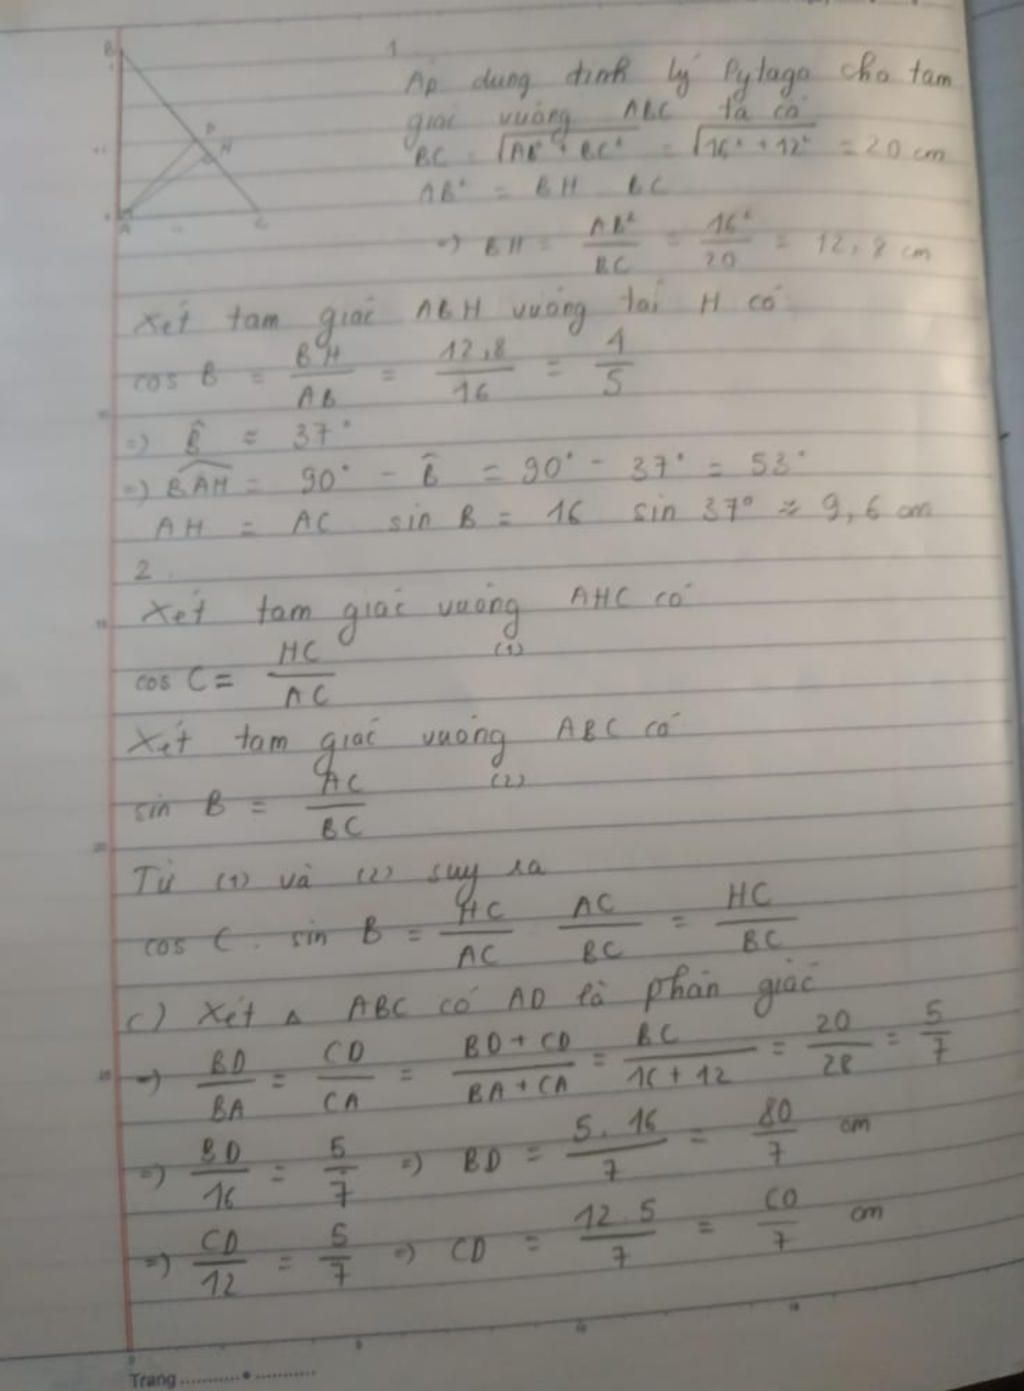 1
Áp dụng định lý Pytago cho tam
giác vuông ABC ta có
BC = √(AB² + BC²) = √(16² + 12²) = 20 cm
AB² = BH BC
=) BH = AB²/BC = 16²/20 = 12,8 cm
Xét tam giác ABH vuông tại H có
cos B = BH/AB = 12,8/16 = 4/5
=) B̂ ≈ 37°
=) BAH = 90° - B̂ = 90° - 37° = 53°
AH = AC sin B = 16 sin 37° ≈ 9,6 cm
2
Xét tam giác vuông AHC có
cos C = HC/AC (1)
Xét tam giác vuông ABC có
sin B = AC/BC (2)
Từ (1) và (2) suy ra
cos C . sin B = HC/AC AC/BC = HC/BC
c) Xét △ ABC có AD là phân giác
=) BD/BA = CD/CA = BD+CD/BA+CA = BC/16+12 = 20/28 = 5/7
=) BD/16 = 5/7 =) BD = 5.16/7 = 80/7 cm
=) CD/12 = 5/7 =) CD = 12.5/7 = 60/7 cm
Trang